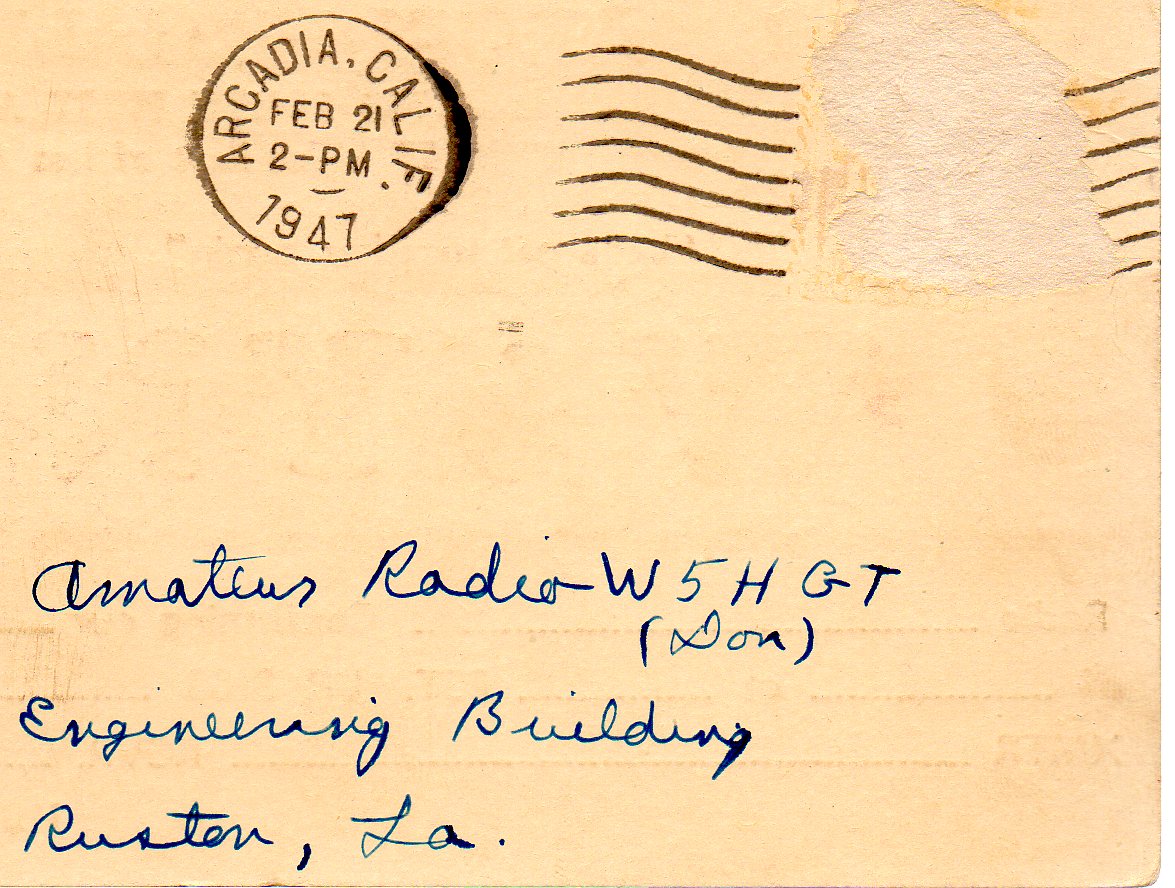 ARCADIA, CALIF.
FEB 21
2-PM
1947
Amateur Radio-W5HGT
(Don)
Engineering Building
Ruston, La.